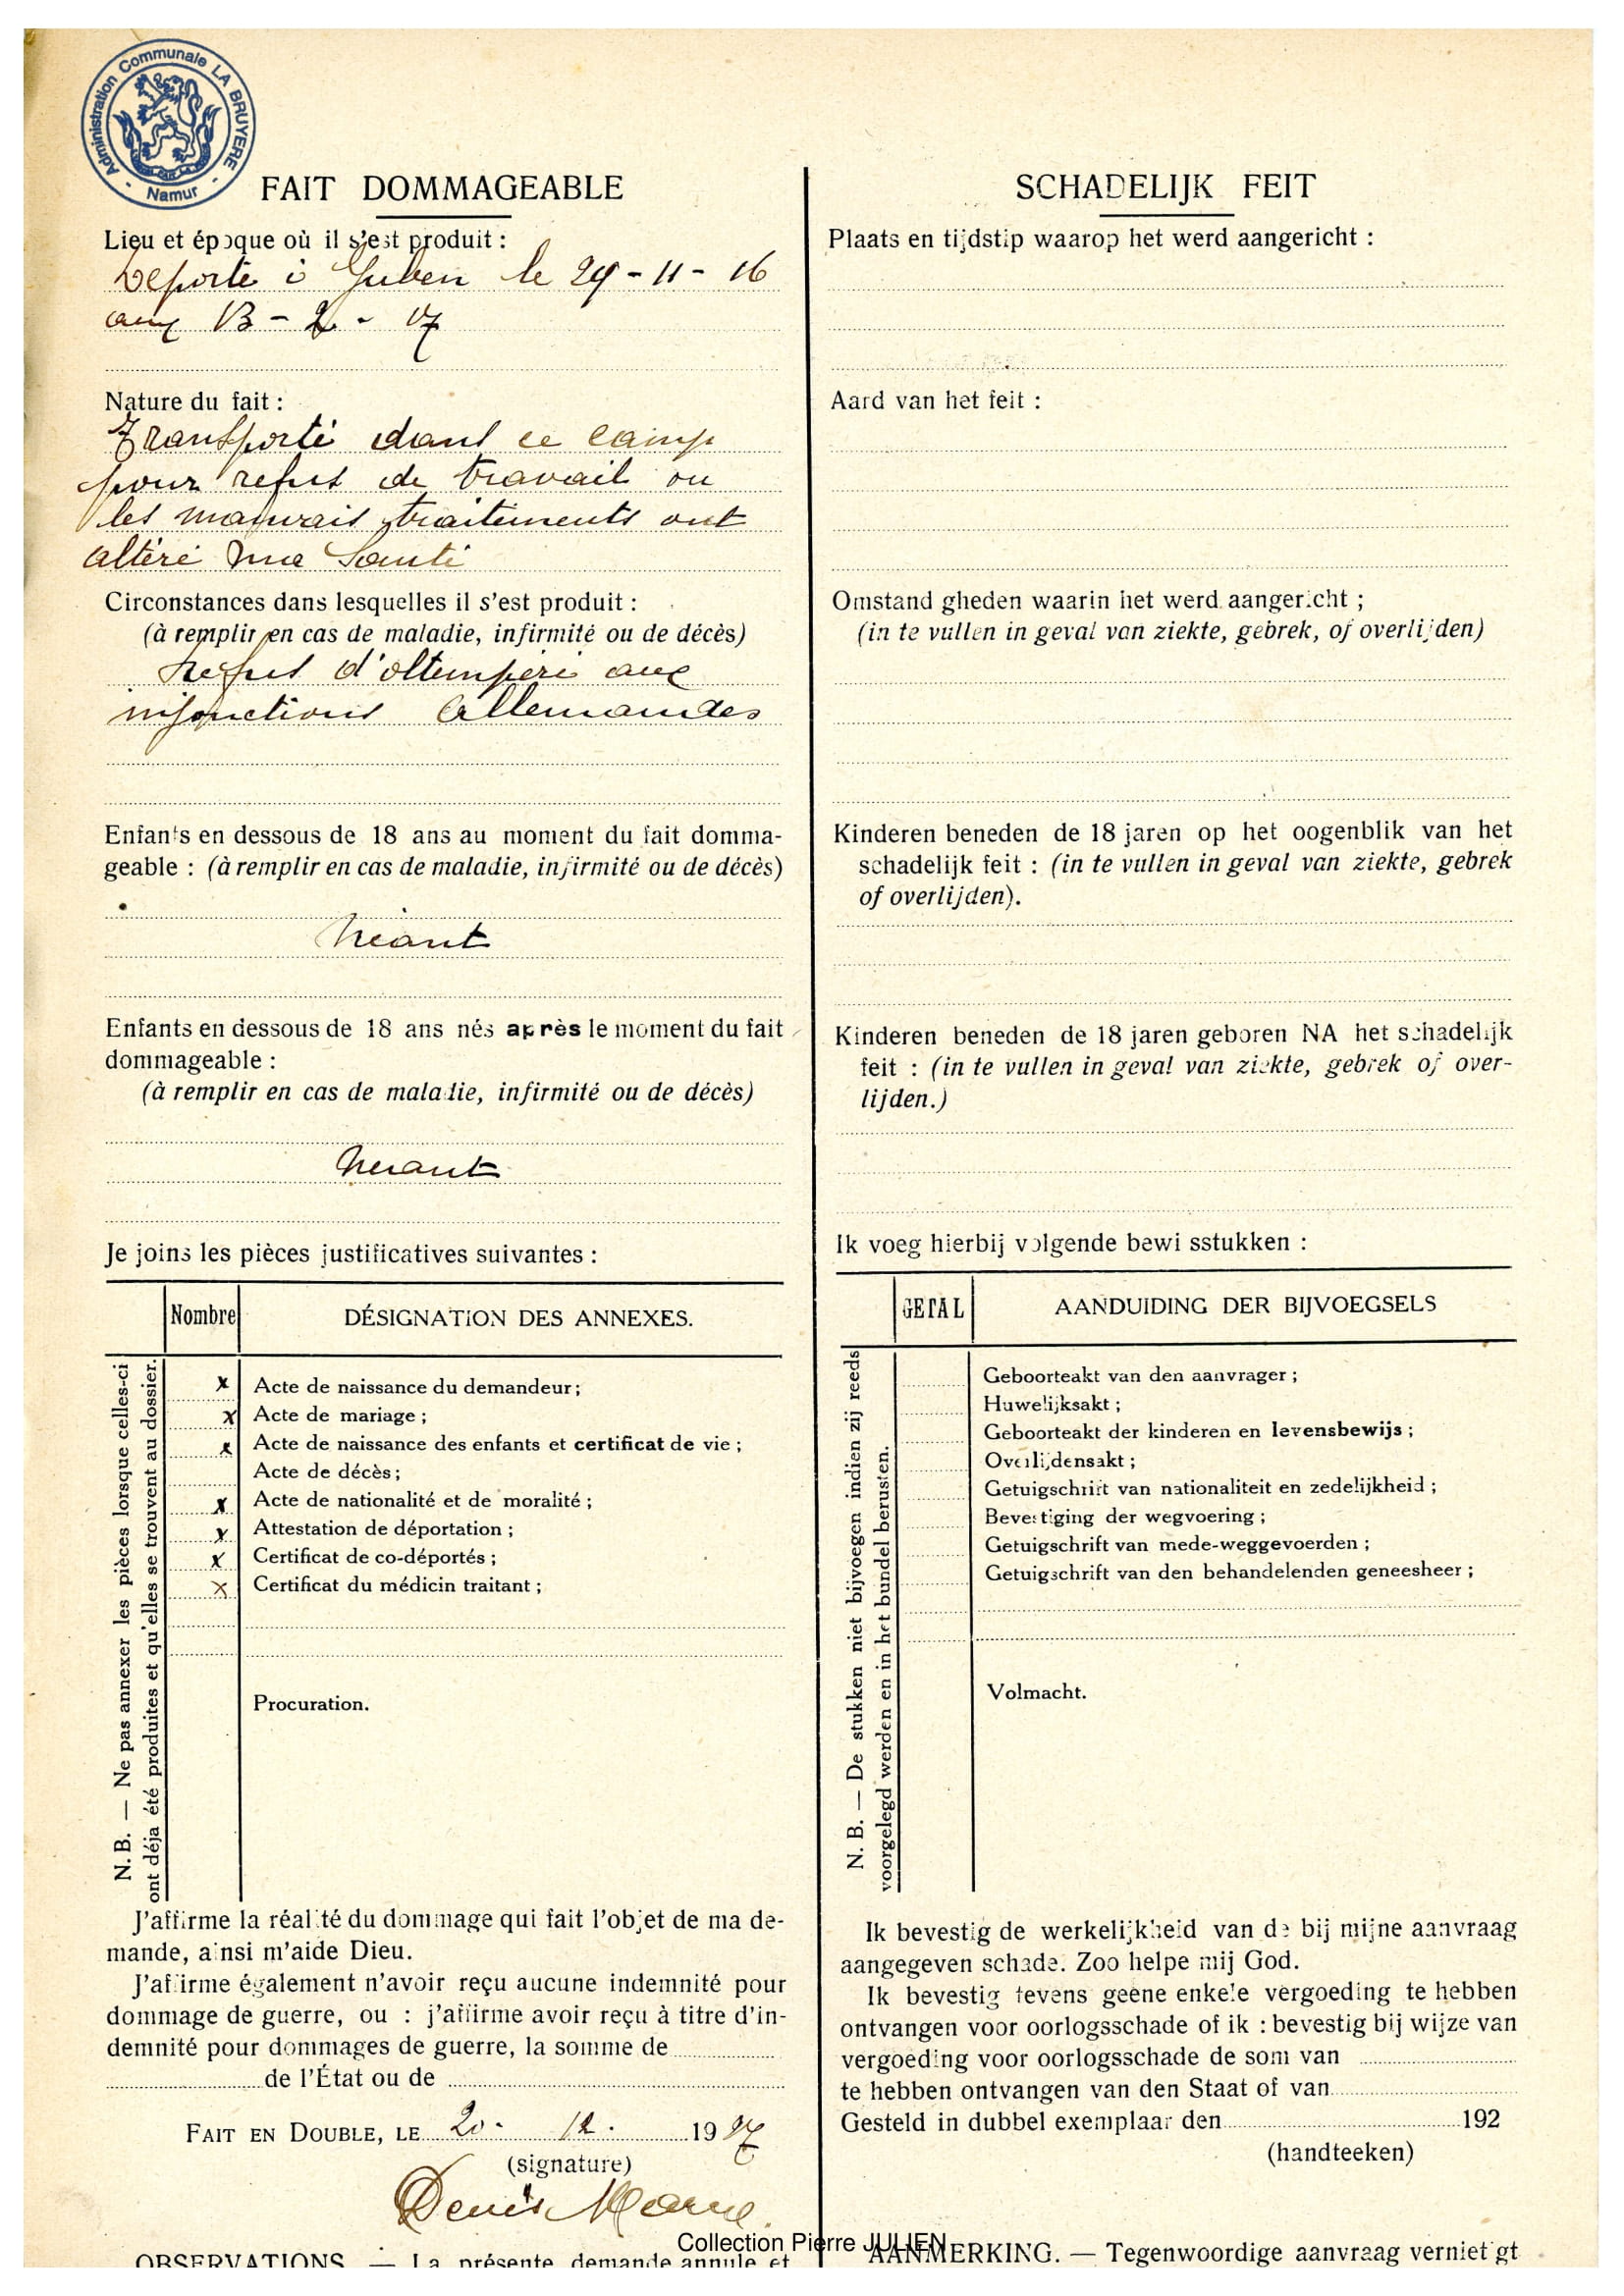 Administration Communale LA BRUYERE
- Namur -
FAIT DOMMAGEABLE
Lieu et époque où il s'est produit :
Deporté à Guben le 29-11-16
aux 13-2-17
Nature du fait :
Transporté dans ce camp
pour refus de travail ou
les mauvais traitements ont
altéré ma Santé
Circonstances dans lesquelles il s'est produit :
(à remplir en cas de maladie, infirmité ou de décès)
Refus d'oltempéré aux
injonctions Allemandes
Enfants en dessous de 18 ans au moment du fait domma-
geable : (à remplir en cas de maladie, infirmité ou de décès)
Néant
Enfants en dessous de 18 ans nés après le moment du fait
dommageable :
(à remplir en cas de maladie, infirmité ou de décès)
Neant
Je joins les pièces justificatives suivantes :
Nombre DÉSIGNATION DES ANNEXES.
N. B. — Ne pas annexer les pièces lorsque celles-ci
ont déja été produites et qu'elles se trouvent au dossier.
x Acte de naissance du demandeur ;
x Acte de mariage ;
x Acte de naissance des enfants et certificat de vie ;
Acte de décès ;
x Acte de nationalité et de moralité ;
x Attestation de déportation ;
x Certificat de co-déportés ;
x Certificat du médicin traitant ;
Procuration.
J'affirme la réalité du dommage qui fait l'objet de ma de-
mande, ainsi m'aide Dieu.
J'affirme également n'avoir reçu aucune indemnité pour
dommage de guerre, ou : j'affirme avoir reçu à titre d'in-
demnité pour dommages de guerre, la somme de
de l'État ou de
FAIT EN DOUBLE, LE 20 - 12 . 1927
(signature)
Denis
OBSERVATIONS. — La présente demande annule et
SCHADELIJK FEIT
Plaats en tijdstip waarop het werd aangericht :
Aard van het feit :
Omstand gheden waarin het werd aangericht ;
(in te vullen in geval van ziekte, gebrek, of overlijden)
Kinderen beneden de 18 jaren op het oogenblik van het
schadelijk feit : (in te vullen in geval van ziekte, gebrek
of overlijden).
Kinderen beneden de 18 jaren geboren NA het schadelijk
feit : (in te vullen in geval van ziekte, gebrek of over-
lijden.)
Ik voeg hierbij volgende bewi sstukken :
GETAL AANDUIDING DER BIJVOEGSELS
N. B. — De stukken niet bijvoegen indien zij reeds
voorgelegd werden en in het bundel berusten.
Geboorteakt van den aanvrager ;
Huwelijksakt ;
Geboorteakt der kinderen en levensbewijs ;
Overlijdensakt ;
Getuigschrift van nationaliteit en zedelijkheid ;
Bevestiging der wegvoering ;
Getuigschrift van mede-weggevoerden ;
Getuigschrift van den behandelenden geneesheer ;
Volmacht.
Ik bevestig de werkelijkheid van de bij mijne aanvraag
aangegeven schade. Zoo helpe mij God.
Ik bevestig tevens geene enkele vergoeding te hebben
ontvangen voor oorlogsschade of ik : bevestig bij wijze van
vergoeding voor oorlogsschade de som van
te hebben ontvangen van den Staat of van
Gesteld in dubbel exemplaar den 192
(handteeken)
AANMERKING. — Tegenwoordige aanvraag verniet gt
Collection Pierre JULIEN